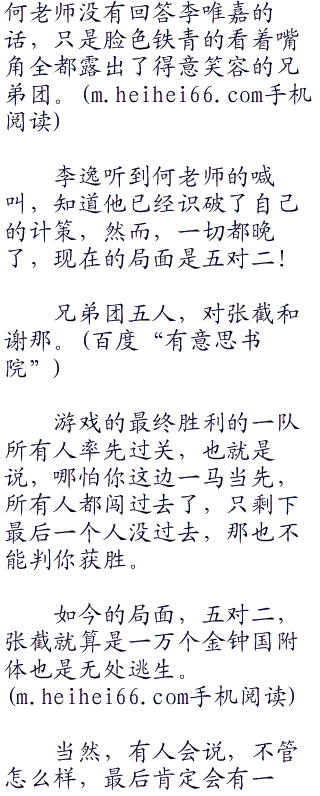 何老师没有回答李唯嘉的
话，只是脸色铁青的看着嘴
角全都露出了得意笑容的兄
弟团。(m.heihei66.com手机
阅读)
李逸听到何老师的喊
叫，知道他已经识破了自己
的计策，然而，一切都晚
了，现在的局面是五对二！
兄弟团五人，对张截和
谢那。(百度“有意思书
院”)
游戏的最终胜利的一队
所有人率先过关，也就是
说，哪怕你这边一马当先，
所有人都闯过去了，只剩下
最后一个人没过去，那也不
能判你获胜。
如今的局面，五对二，
张截就算是一万个金钟国附
体也是无处逃生。
(m.heihei66.com手机阅读)
当然，有人会说，不管
怎么样，最后肯定会有一